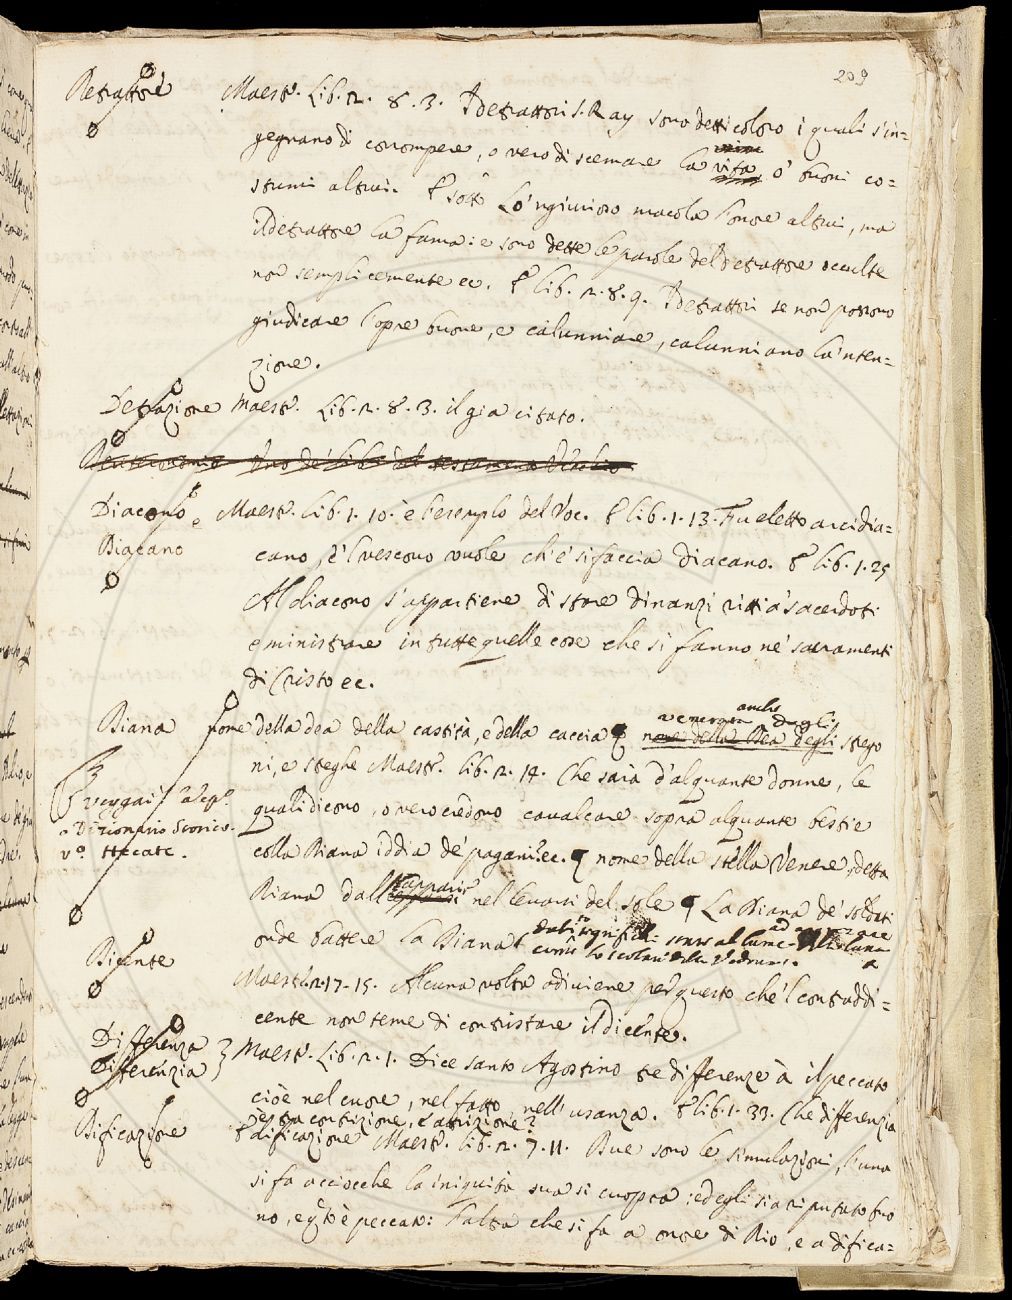 209
Detrattore Maestr. Lib. 2. 8. 3. I detrattori s. Ray sono detti coloro i quali s'in=
gegnano di corrompere, o vero di scemare la vita, o' buoni co=
stumi altrui. E sotto Lo 'ngiurioso macola l'onore altrui, ma
il detrattore la fama: e sono dette le parole del detrattore occulte
non semplicemente ec. E lib. 2. 8. 9. I detrattori se non possono
giudicare l'opre buone, e calunniare, calunniano la 'nten=
zione.
Detrazione Maestr. Lib. 2. 8. 3. il gia citato.
Deuteronomio Uno de' libri del testamento Vecchio
Diacono e Maestr. Lib. 1. 10. è l'esemplo del Voc. E lib. 1. 13. Fu eletto arcidia=
Diacano cano, e 'l vescovo vuole ch' e' si faccia diacano. E lib. 1. 25
Al diacono s'appartiene di stare dinanzi ritti a' sacerdoti
e ministrare in tutte quelle cose che si fanno ne' sacramenti
di Cristo ec.
anche
venerata dagli
Diana nome della dea della castità, e della caccia nome della Dea degli strego
ni, e streghe Maestr. lib. 2. 14. Che sarà d'alquante donne, le
quali dicono, o vero credono cavalcare sopra alquante bestie
o Dizionario Storico.
vo. Hecate.
colla Diana iddia de' pagani ec. nome della stella Venere, detta
Diana dall' apparir nel levarsi del sole La Diana de' soldati
onde battere la Diana
Dicente Maestr. 2. 17. 15. Alcuna volta adiviene per questo che 'l contraddi=
cente non teme di contristare il dicente.
Differenza
Differenzia } Maestr. Lib. 2. 1. Dice santo Agostino tre differenze à il peccato
cioè nel cuore, nel fatto, nell' usanza. E lib. 1. 33. Che differenzia
è tra contrizione, e attrizione?
Dificazione E dificazione Maestr. lib. 2. 7. 11. Due sono le simulazioni, l'una
si fa acciocche la iniquità sua si cuopra: ed egli sia riputato buo
no, e questo è peccato: l'altra che si fa a onore di Dio, e a difica=